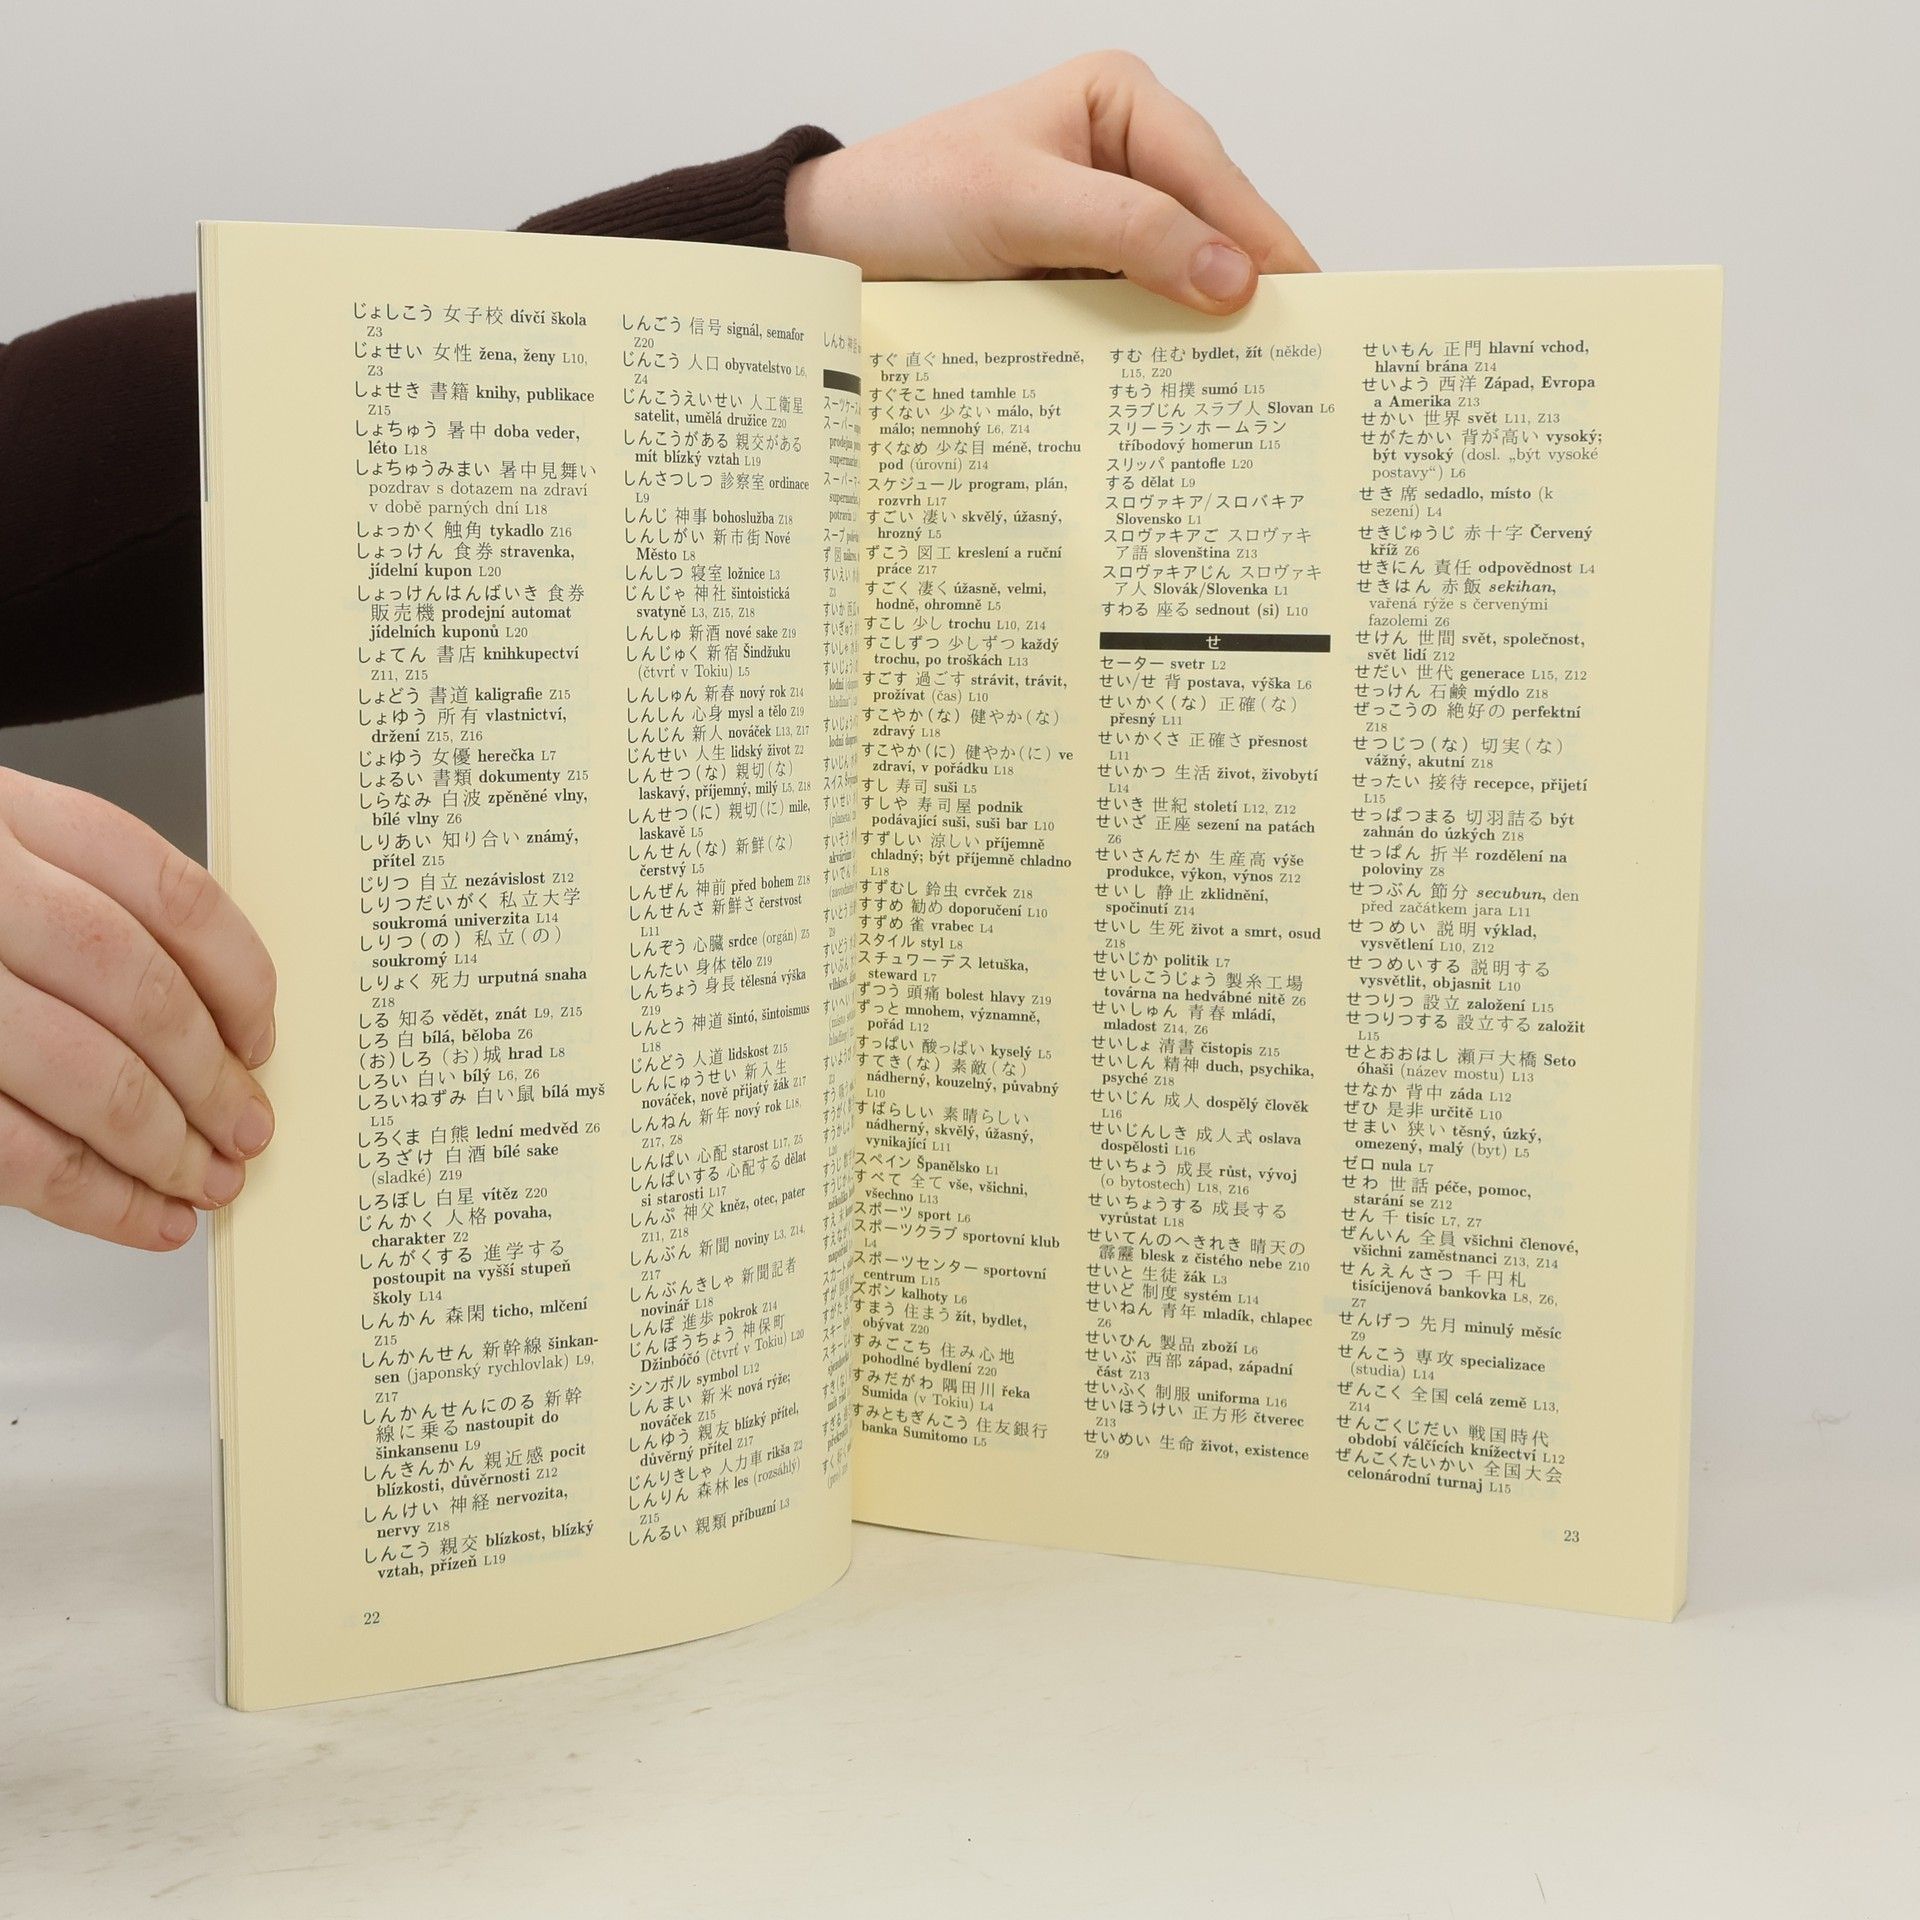 じょしこう 女子校 dívčí škola
Z3
じょせい 女性 žena, ženy L10,
Z3
しょせき 書籍 knihy, publikace
Z15
しょちゅう 暑中 doba veder,
léto L18
しょちゅうみまい 暑中見舞い
pozdrav s dotazem na zdraví
v době parných dní L18
しょっかく 触角 tykadlo Z16
しょっけん 食券 stravenka,
jídelní kupon L20
しょっけんはんばいき 食券
販売機 prodejní automat
jídelních kuponů L20
しょてん 書店 knihkupectví
Z11, Z15
しょどう 書道 kaligrafie Z15
しょゆう 所有 vlastnictví,
držení Z15, Z16
じょゆう 女優 herečka L7
しょるい 書類 dokumenty Z15
しらなみ 白波 zpěněné vlny,
bílé vlny Z6
しりあい 知り合い známý,
přítel Z15
じりつ 自立 nezávislost Z12
しりつだいがく 私立大学
soukromá univerzita L14
しりつ(の) 私立(の)
soukromý L14
しりょく 死力 urputná snaha
Z18
しる 知る vědět, znát L9, Z15
しろ 白 bílá, běloba Z6
(お)しろ (お)城 hrad L8
しろい 白い bílý L6, Z6
しろいねずみ 白い鼠 bílá myš
L15
しろくま 白熊 lední medvěd Z6
しろざけ 白酒 bílé sake
(sladké) Z19
しろぼし 白星 vítěz Z20
じんかく 人格 povaha,
charakter Z2
しんがくする 進学する
postoupit na vyšší stupeň
školy L14
しんかん 森閑 ticho, mlčení
Z15
しんかんせん 新幹線 šinkan-
sen (japonský rychlovlak) L9,
Z17
しんかんせんにのる 新幹
線に乗る nastoupit do
šinkansenu L9
しんきんかん 親近感 pocit
blízkosti, důvěrnosti Z12
しんけい 神経 nervozita,
nervy Z18
しんこう 親交 blízkost, blízký
vztah, přízeň L19
22
しんごう 信号 signál, semafor
Z20
じんこう 人口 obyvatelstvo L6,
Z4
じんこうえいせい 人工衛星
satelit, umělá družice Z20
しんこうがある 親交がある
mít blízký vztah L19
しんさつしつ 診察室 ordinace
L9
しんじ 神事 bohoslužba Z18
しんしがい 新市街 Nové
Město L8
しんしつ 寝室 ložnice L3
じんじゃ 神社 šintoistická
svatyně L3, Z15, Z18
しんしゅ 新酒 nové sake Z19
しんじゅく 新宿 Šindžuku
(čtvrť v Tokiu) L5
しんしゅん 新春 nový rok Z14
しんしん 心身 mysl a tělo Z19
しんじん 新人 nováček L13, Z17
じんせい 人生 lidský život Z2
しんせつ(な) 親切(な)
laskavý, příjemný, milý L5, Z18
しんせつ(に) 親切(に) mile,
laskavě L5
しんせん(な) 新鮮(な)
čerstvý L5
しんぜん 神前 před bohem Z18
しんせんさ 新鮮さ čerstvost
L11
しんぞう 心臓 srdce (orgán) Z5
しんたい 身体 tělo Z19
しんちょう 身長 tělesná výška
Z19
しんとう 神道 šintó, šintoismus
L18
じんどう 人道 lidskost Z15
しんにゅうせい 新入生
nováček, nově přijatý žák Z17
しんねん 新年 nový rok L18,
Z17, Z8
しんぱい 心配 starost L17, Z5
しんぱいする 心配する dělat
si starosti L17
しんぷ 神父 kněz, otec, pater
Z11, Z18
しんぶん 新聞 noviny L3, Z14,
Z17
しんぶんきしゃ 新聞記者
novinář L18
しんぽ 進歩 pokrok Z14
じんぼうちょう 神保町
Džinbóčó (čtvrť v Tokiu) L20
シンボル symbol L12
しんまい 新米 nová rýže;
nováček Z15
しんゆう 親友 blízký přítel,
důvěrný přítel Z17
じんりきしゃ 人力車 rikša Z2
しんりん 森林 les (rozsáhlý)
Z15
しんるい 親類 příbuzní L3
すぐ 直ぐ hned, bezprostředně,
brzy L5
すぐそこ hned tamhle L5
すくない 少ない málo, být
málo; nemnohý L6, Z14
すくなめ 少な目 méně, trochu
pod (úrovní) Z14
スケジュール program, plán,
rozvrh L17
すごい 凄い skvělý, úžasný,
hrozný L5
ずこう 図工 kreslení a ruční
práce Z17
すごく 凄く úžasně, velmi,
hodně, ohromně L5
すこし 少し trochu L10, Z14
すこしずつ 少しずつ každý
trochu, po troškách L13
すごす 過ごす strávit, trávit,
prožívat (čas) L10
すこやか(な) 健やか(な)
zdravý L18
すこやか(に) 健やか(に) ve
zdraví, v pořádku L18
すし 寿司 suši L5
すしや 寿司屋 podnik
podávající suši, suši bar L10
すずしい 涼しい příjemně
chladný; být příjemně chladno
L18
すずむし 鈴虫 cvrček Z18
すすめ 勧め doporučení L10
すずめ 雀 vrabec L4
スタイル styl L8
スチュワーデス letuška,
steward L7
ずつう 頭痛 bolest hlavy Z19
ずっと mnohem, významně,
pořád L12
すっぱい 酸っぱい kyselý L5
すてき(な) 素敵(な)
nádherný, kouzelný, půvabný
L10
すばらしい 素晴らしい
nádherný, skvělý, úžasný,
vynikající L11
スペイン Španělsko L1
すべて 全て vše, všichni,
všechno L13
スポーツ sport L6
スポーツクラブ sportovní klub
L4
スポーツセンター sportovní
centrum L15
ズボン kalhoty L6
すまう 住まう žít, bydlet,
obývat Z20
すみごこち 住み心地
pohodlné bydlení Z20
すみだがわ 隅田川 řeka
Sumida (v Tokiu) L4
すみともぎんこう 住友銀行
banka Sumitomo L5
すむ 住む bydlet, žít (někde)
L15, Z20
すもう 相撲 sumó L15
スラブじん スラブ人 Slovan L6
スリーランホームラン
tříbodový homerun L15
スリッパ pantofle L20
する dělat L9
スロヴァキア/スロバキア
Slovensko L1
スロヴァキアご スロヴァキ
ア語 slovenština Z13
スロヴァキアじん スロヴァキ
ア人 Slovák/Slovenka L1
すわる 座る sednout (si) L10
せ
セーター svetr L2
せい/せ 背 postava, výška L6
せいかく(な) 正確(な)
přesný L11
せいかくさ 正確さ přesnost
L11
せいかつ 生活 život, živobytí
L14
せいき 世紀 století L12, Z12
せいざ 正座 sezení na patách
Z6
せいさんだか 生産高 výše
produkce, výkon, výnos Z12
せいし 静止 zklidnění,
spočinutí Z14
せいし 生死 život a smrt, osud
Z18
せいじか politik L7
せいしこうじょう 製糸工場
továrna na hedvábné nitě Z6
せいしゅん 青春 mládí,
mladost Z14, Z6
せいしょ 清書 čistopis Z15
せいしん 精神 duch, psychika,
psyché Z18
せいじん 成人 dospělý člověk
L16
せいじんしき 成人式 oslava
dospělosti L16
せいちょう 成長 růst, vývoj
(o bytostech) L18, Z16
せいちょうする 成長する
vyrůstat L18
せいてんのへきれき 晴天の
霹靂 blesk z čistého nebe Z10
せいと 生徒 žák L3
せいど 制度 systém L14
せいねん 青年 mladík, chlapec
Z6
せいひん 製品 zboží L6
せいぶ 西部 západ, západní
část Z13
せいふく 制服 uniforma L16
せいほうけい 正方形 čtverec
Z13
せいめい 生命 život, existence
Z9
せいもん 正門 hlavní vchod,
hlavní brána Z14
せいよう 西洋 Západ, Evropa
a Amerika Z13
せかい 世界 svět L11, Z13
せがたかい 背が高い vysoký;
být vysoký (dosl. „být vysoké
postavy“) L6
せき 席 sedadlo, místo (k
sezení) L4
せきじゅうじ 赤十字 Červený
kříž Z6
せきにん 責任 odpovědnost L4
せきはん 赤飯 sekihan,
vařená rýže s červenými
fazolemi Z6
せけん 世間 svět, společnost,
svět lidí Z12
せだい 世代 generace L15, Z12
せっけん 石鹸 mýdlo Z18
ぜっこうの 絶好の perfektní
Z18
せつじつ(な) 切実(な)
vážný, akutní Z18
せったい 接待 recepce, přijetí
L15
せっぱつまる 切羽詰る být
zahnán do úzkých Z18
せっぱん 折半 rozdělení na
poloviny Z8
せつぶん 節分 secubun, den
před začátkem jara L11
せつめい 説明 výklad,
vysvětlení L10, Z12
せつめいする 説明する
vysvětlit, objasnit L10
せつりつ 設立 založení L15
せつりつする 設立する založit
L15
せとおおはし 瀬戸大橋 Seto
óhaši (název mostu) L13
せなか 背中 záda L12
ぜひ 是非 určitě L10
せまい 狭い těsný, úzký,
omezený, malý (byt) L5
ゼロ nula L7
せわ 世話 péče, pomoc,
starání se Z12
せん 千 tisíc L7, Z7
ぜんいん 全員 všichni členové,
všichni zaměstnanci Z13, Z14
せんえんさつ 千円札
tisícijenová bankovka L8, Z6,
Z7
せんげつ 先月 minulý měsíc
Z9
せんこう 専攻 specializace
(studia) L14
ぜんこく 全国 celá země L13,
Z14
せんごくじだい 戦国時代
období válčících knížectví L12
ぜんこくたいかい 全国大会
celonárodní turnaj L15
23